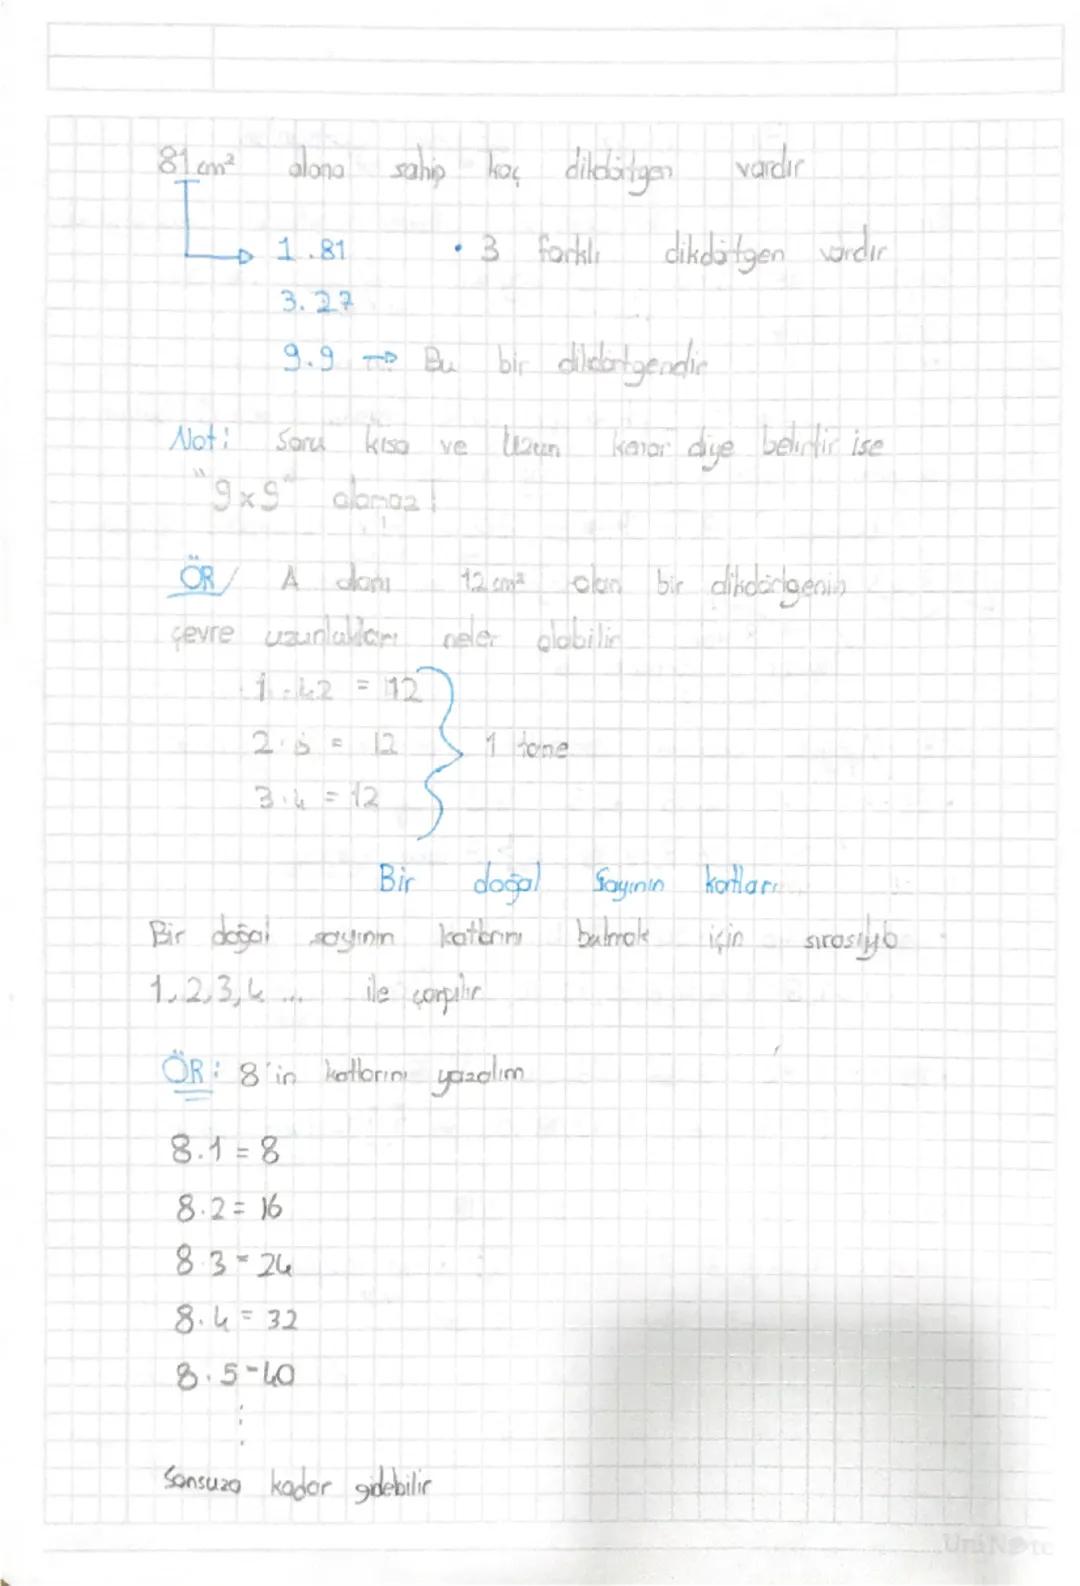 81 cm² alana sahip kaç dikdörtgen vardır
1.81 • 3 farklı dikdörtgen vardır
3.27
9.9 → Bu bir dikdörtgendir
Not: Soru kısa ve Uzun kenar diye belirtir ise
"9x9" olamaz!
ÖR/ A alanı 12 cm² olan bir dikdörtgenin
çevre uzunlukları neler olabilir
1.12 = 12
2.6 = 12 1 tane
3.4 = 12
Bir doğal Sayının katları
Bir doğal sayının katlarını bulmak için sırasıyla
1, 2, 3, 4 ... ile çarpılır
ÖR: 8'in katlarını yazalım
8.1 = 8
8.2 = 16
8.3 = 24
8.4 = 32
8.5 = 40
Sonsuza kadar gidebilir
UniNote